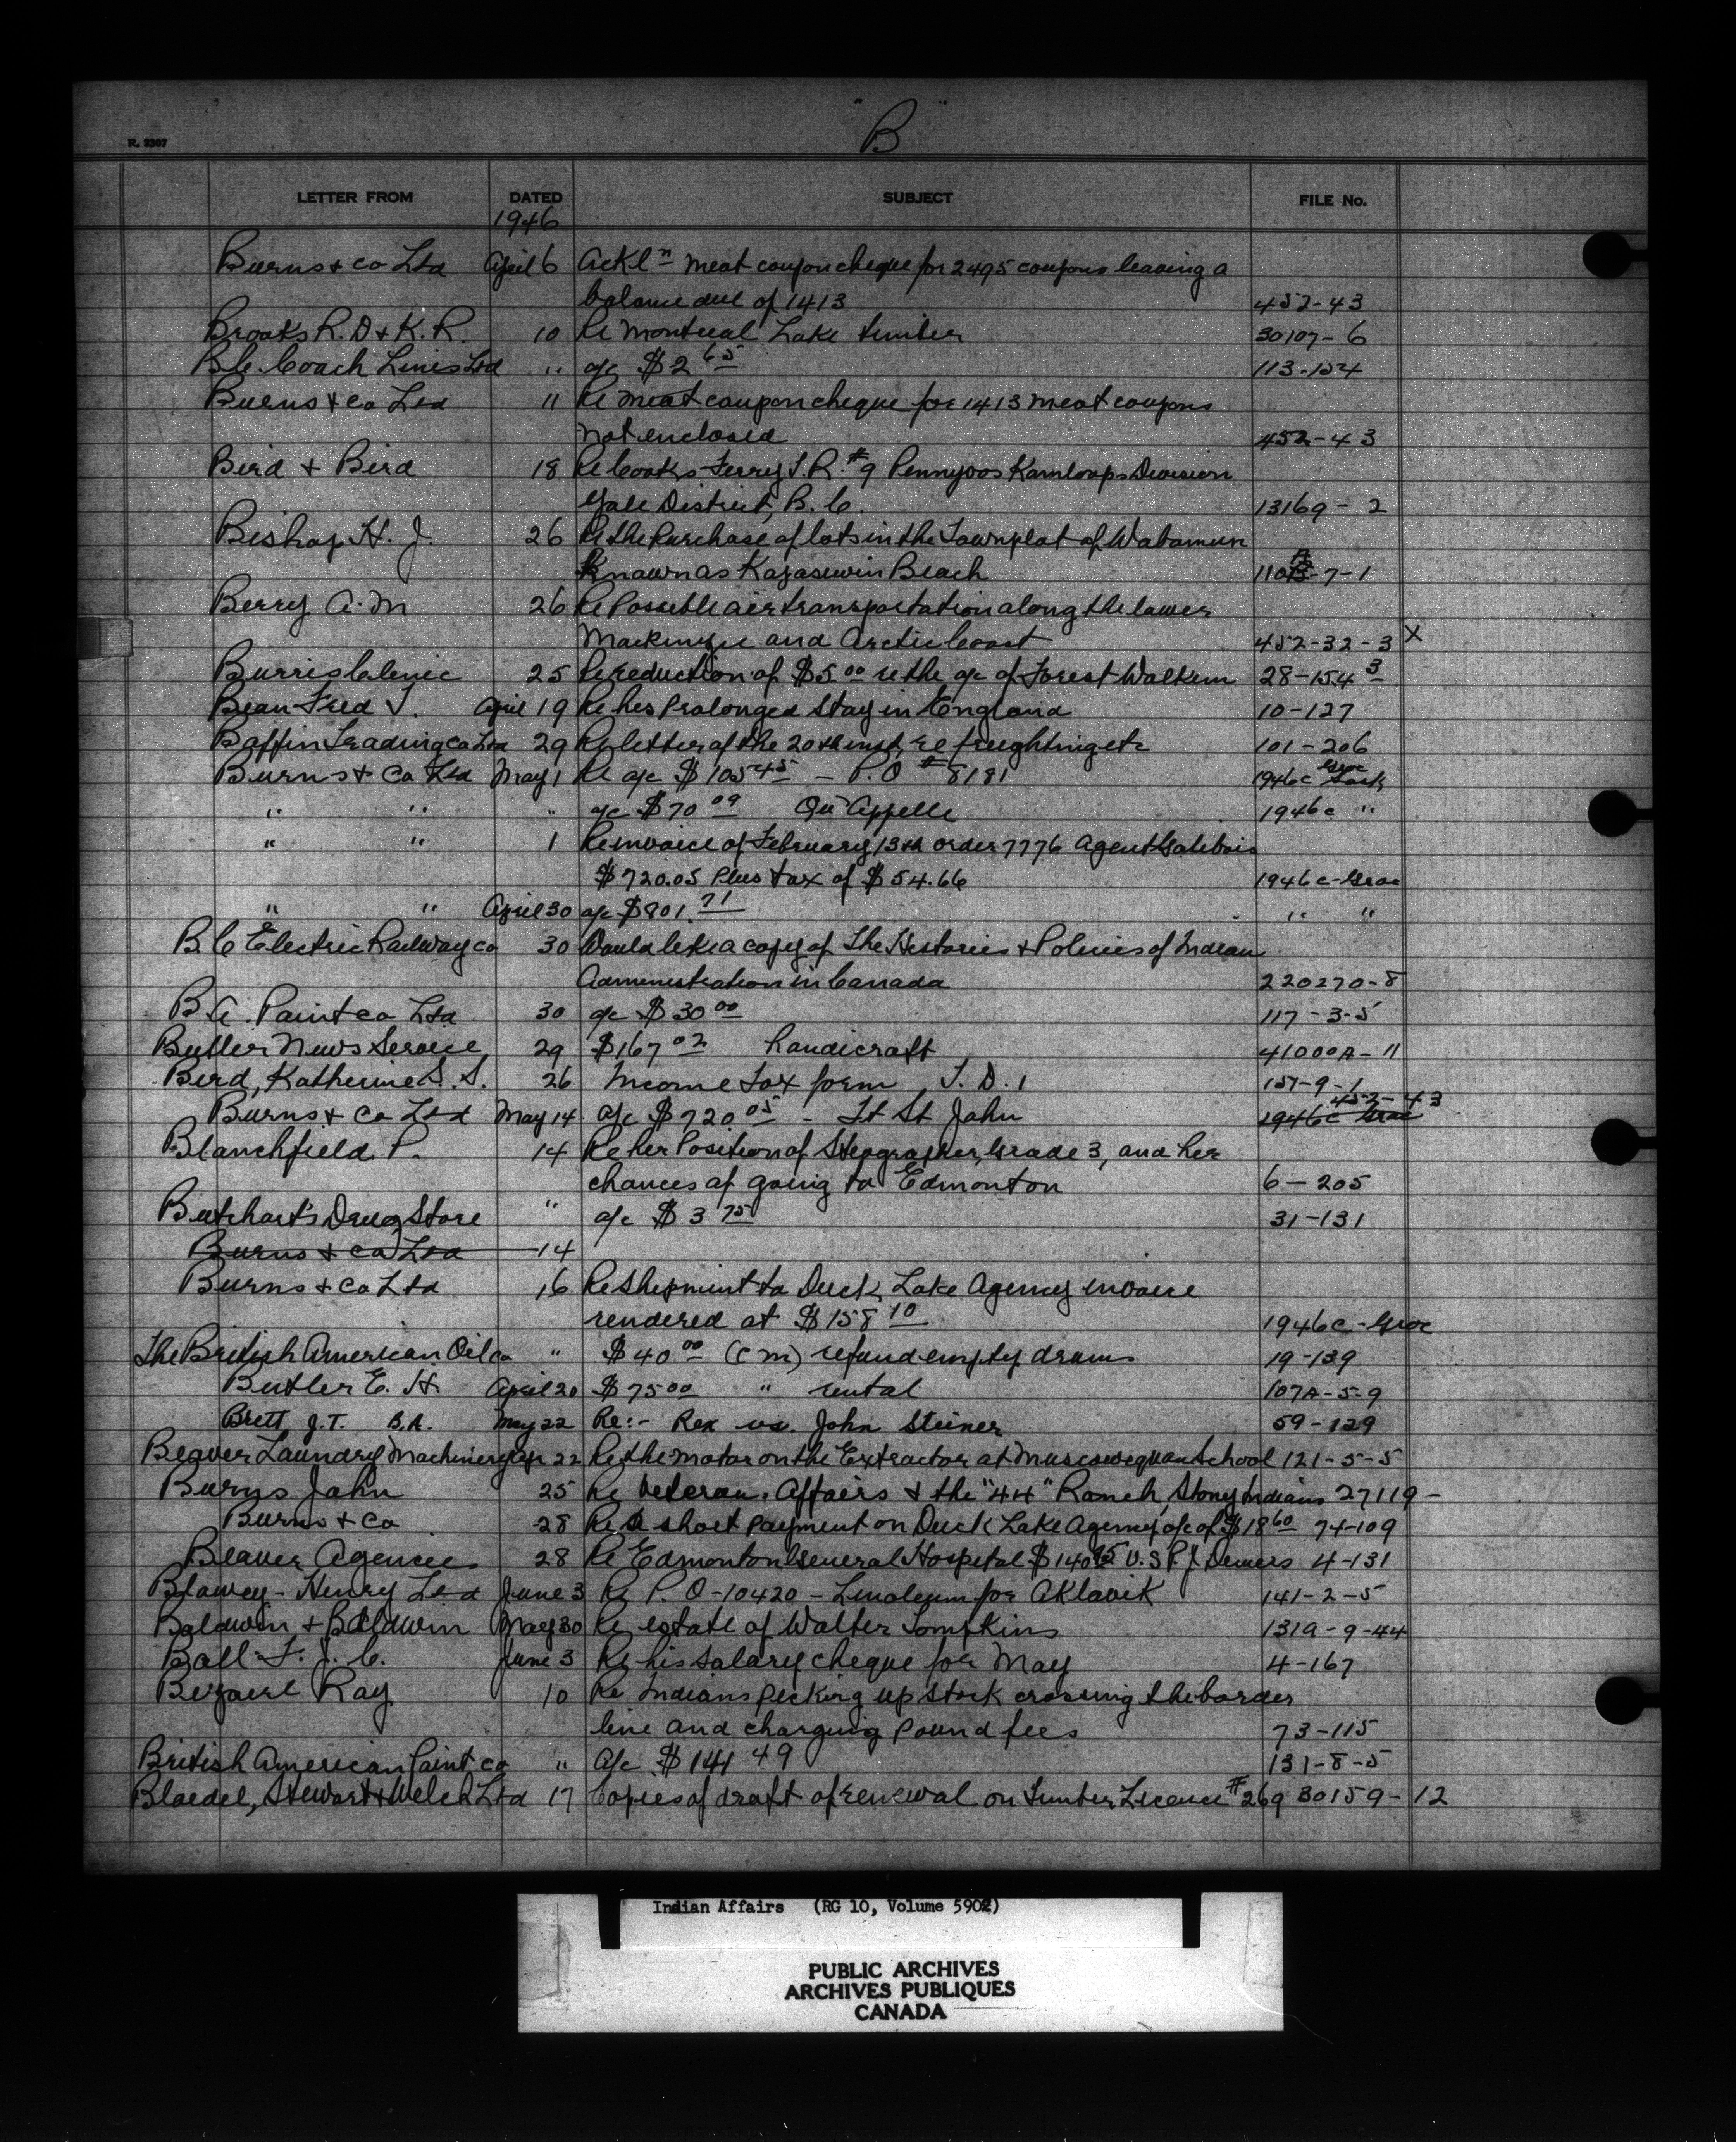 "B"
R. 2307
LETTER FROM DATED SUBJECT FILE No.
1946
Burns + Co Ltd April 6 Ackl n meat coupon cheque for 2495 coupons leaving a
balance due of 1413 452-43
Brooks R. D + K. R. 10 Re Montreal Lake timber 30107-6
B.C. Coach Lines Ltd " a/c $2 65 113-154
Burns + Co Ltd 11 Re meat coupon cheque for 1413 meat coupons
not enclosed 452-43
Bird + Bird 18 Re Cooks Ferry I.R. #9 Pennyoos Kamloops Division
Yale District, B.C. 13169-2
Bishop H. J. 26 Re the Purchase of lots in the Townplat of Wabamun
Known as Kapasiwin Beach 110A-7-1
Berry A. M 26 Re Possible air transportation along the lower
Mackenzie and Arctic Coast 452-32-3 X
Burris Clinic 25 Re reduction of $5.00 re the a/c of Forest Walkem 28-154 3
Bean Fred J. April 19 Re his Prolonged Stay in England 10-127
Baffin Trading Co Ltd 29 Re letter of the 20th inst, re freighting etc 101-206
Burns + Co Ltd May 1 Re a/c $105 45 - P.O # 8181 1946c Groc
" " " a/c $70 09 Qu'Appelle 1946c "
" " 1 Re invoice of February 13th order 7776 Agent Galibois
$720.05 Plus tax of $54.66 1946c-Groc
" " April 30 a/c $801.71 " "
B C Electric Railway Co 30 Would like a copy of The Histories + Policies of Indian
Administration in Canada 220270-8
B.A. Paint Co Ltd 30 a/c $30 00 117-3-5
Butler News Service 29 $167 02 handicraft 41000A-11
Bird, Katherine S. S. 26 Income Tax form T.D.1 151-9-1
Burns + Co Ltd May 14 a/c $720 05 - Ft St John 1946c Groc 452-43
Blanchfield P. 14 Re her Position of Stenographer, Grade 3, and her
chances of going to Edmonton 6-205
Butchart's Drug Store " a/c $3 75 31-131
Burns + Co Ltd 14
Burns + Co Ltd 16 Re shipment to Duck Lake Agency invoice
rendered at $158 10 1946c-Groc
The British American Oil Co " $40 00 (C M) refund empty drums 19-139
Butler E. H. April 20 $75 00 " rental 107A-5-9
Brett J.T. B.A. May 22 Re:- Rex vs. John Steiner 59-129
Beaver Laundry Machinery Apr 22 Re the motor on the Extractor at Muscowequan School 121-5-5
Burns John 25 Re Veteran. Affairs + the "44" Ranch, Stony Indians 27119-
Burns + Co 28 Re a short payment on Duck Lake Agency a/c of $18 60 74-109
Beaver Agencies 28 Re Edmonton General Hospital $140 95 V.S P.J. Demers 4-131
Blawey-Henry Ltd June 3 Re P.O-10420-Linoleum for Aklavik 141-2-5
Baldwin + Baldwin May 30 Re estate of Walter Tompkins 131A-9-44
Ball F. J. C. June 3 Re his salary cheque for May 4-167
Bezaire Ray 10 Re Indians Picking up stock crossing the border
line and charging pound fees 73-115
British American Paint Co " a/c $141 49 131-8-5
Bloedel, Stewart + Welch Ltd 17 Copies of draft of renewal on Timber Licence #269 30159-12
Indian Affairs (RG 10, Volume 5902)
PUBLIC ARCHIVES
ARCHIVES PUBLIQUES
CANADA